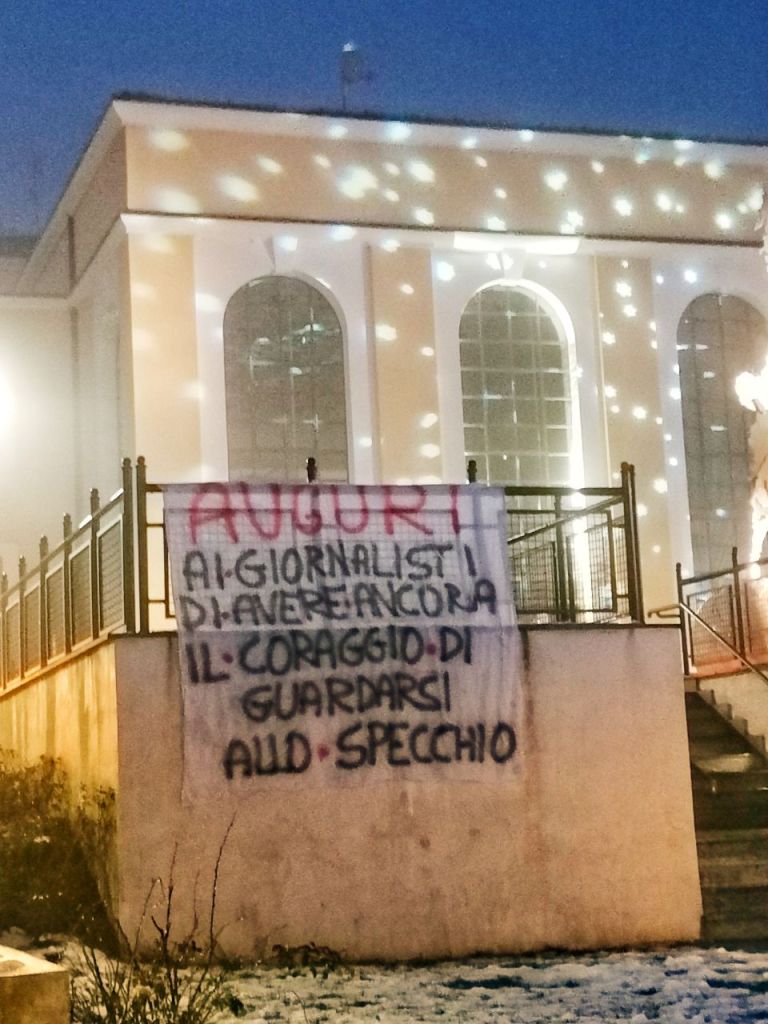 AUGURI
AI·GIORNALISTI
DI·AVERE·ANCORA
IL·CORAGGIO·DI
GUARDARSI
ALLO·SPECCHIO